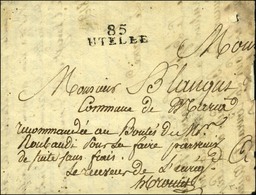 85
UTELLE
Mon
Monsieur Blanqui
Commune de
recommandée au Bontés du Mr
Roubaudi pour la faire parvenir
de suite sans frais.
Le receveur de l'enreg